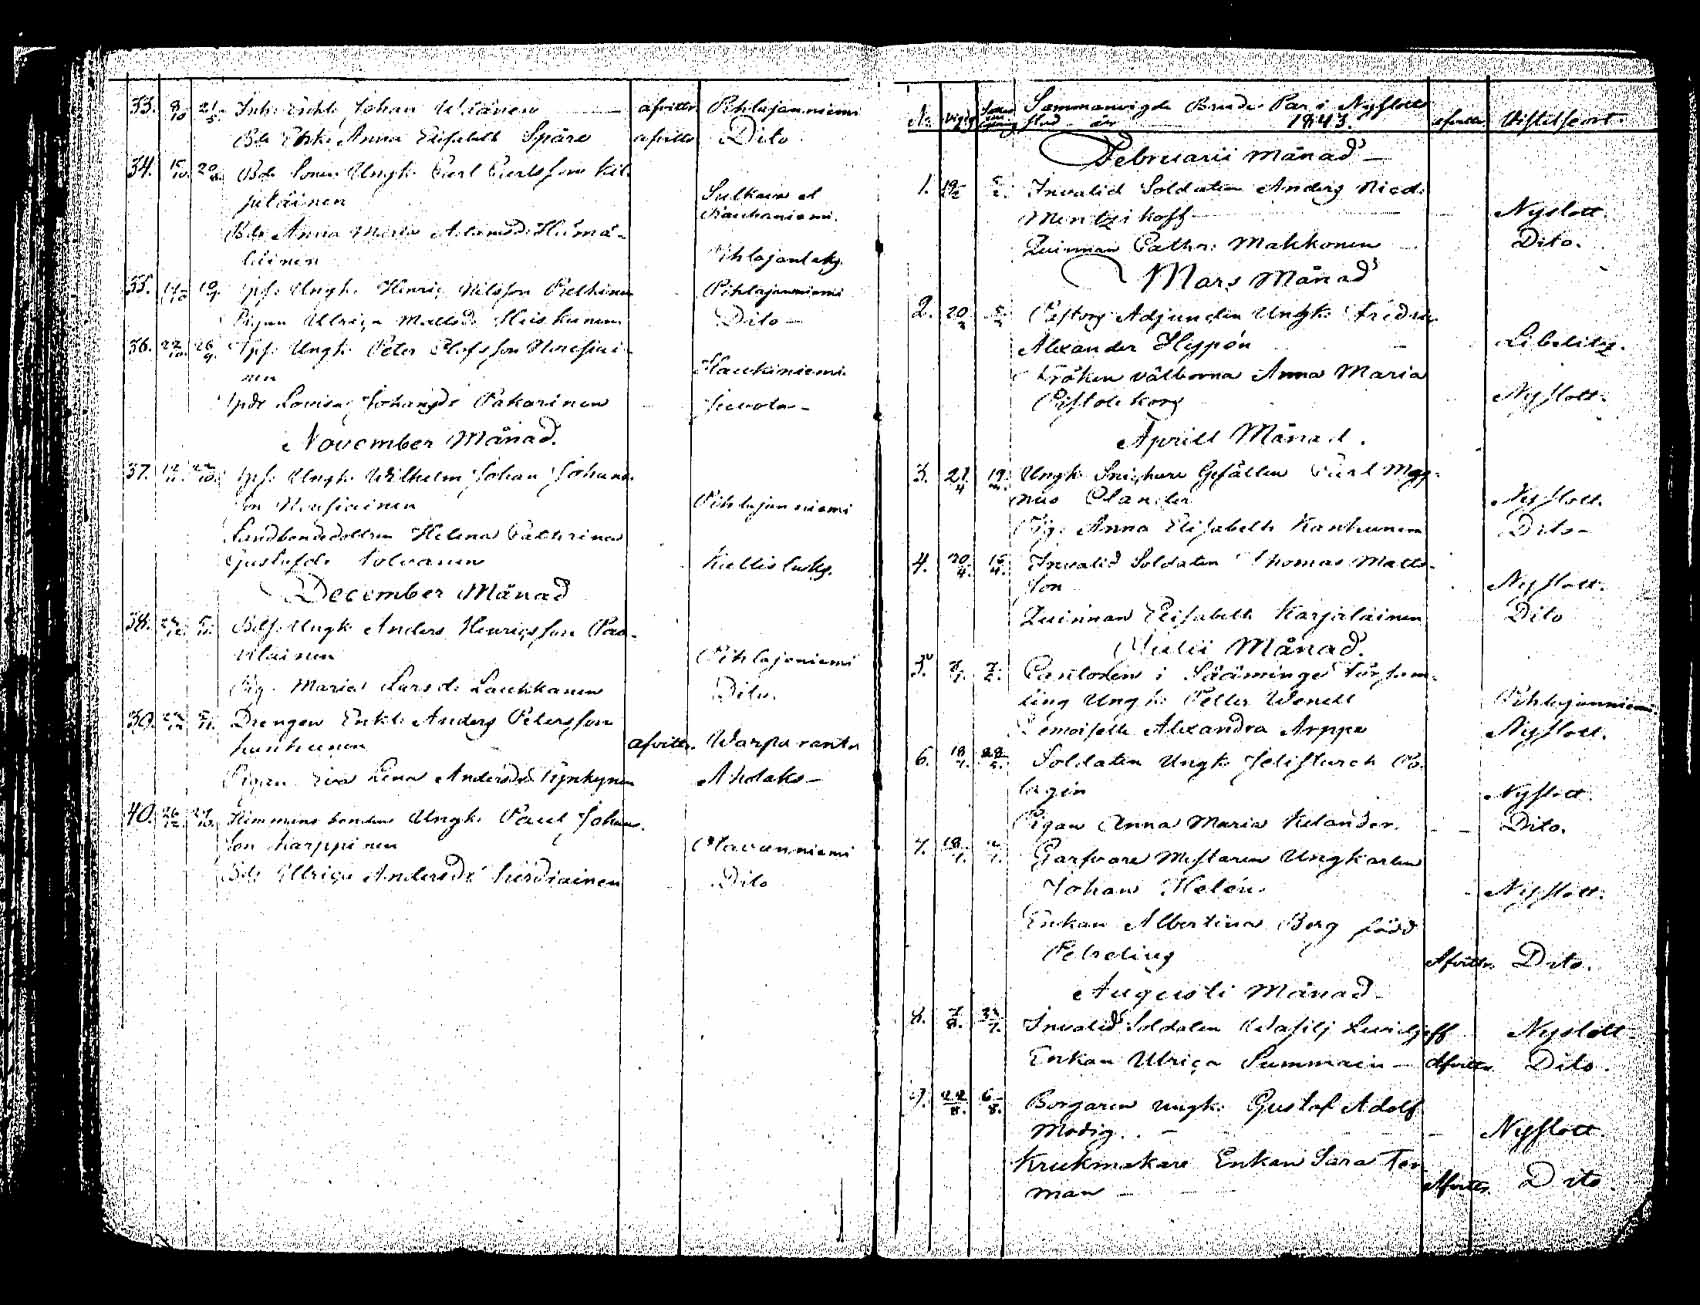 33. 8/10 21/5. Inh: Enkl: Johan Wiänen afvittr Pihlajanniemi
Bde Enk: Anna Elisabeth Späre afvittr Dito
34. 15/10. 20/8. Bde Sonen Ungk: Carl Carlsson Kil-
piläinen Sulkava et
Kauhaniemi.
Bdr Anna Maria Adamsdr Hämä-
läinen Pihlajanlaks.
35. Ipf: Ungk: Henric Nilsson Pulkinen Pihlajanniemi
Pigan Ulrica Mattsdr Heiskanen Dito
36. 22/10. 26/9. Ipf: Ungk: Peter Olofsson Nousiai-
nen Haukiniemi
Ipdr Lovisa Johansdr Pakarinen
November Månad.
37. Ipf: Ungk: Wilhelm Johan Johans-
son Nousiainen Pihlajanniemi
Landbondedottren Helena Cathrina
Gustafsdr Tolvanen Kallislaks.
December Månad
38. Bdf: Ungk: Anders Henricsson Paa-
vilainen Pihlajaniemi
Pig: Maria Larsdr Laukkanen Dito.
39. Drengen Enkl: Anders Petersson
Kankunen afvittr. Warparanta
Pigan Eva Lena Andersdr Kynkynen Aholaks
40. 26/12. Hemmans bonden Ungk: Paul Johans-
son Karppinen Olavanniemi
Bdr Ulrica Andersdr Dito
No. Vigde Sammanvigde Brude Par i Nyslotts
stad år 1843. afvittr Vistelseort
Februarii Månad
1. Invalid Soldaten Anders Nied-
Mentzikoff Nyslott.
Quinnan Cathr: Makkonen Dito.
Mars Månad
2. 20/3 Pastors Adjuncten Ungk: Fredric
Alexander Hyppön Libelitz.
Fröken välborna Anna Maria
Pistolekors Nyslott.
Aprill Månad.
3. 21/4 19/2. Ungk: Snickare Gesällen Carl Mag-
nus Olander Nyslott.
Pig: Anna Elisabeth Kankunen Dito
4. 20/4. 15/4. Invalid Soldaten Thomas Matts-
son Nyslott.
Quinnan Elisabeth Karjalainen Dito
Julii Månad.
5. Cantoren i Sääminge Försam-
ling Ungk: Petter Wenell Pihlajanniemi.
Demoiselle Alexandra Arppe Nyslott.
6. Soldaten Ungk: Feliflurch Po-
lagin Nyslott.
Pigan Anna Maria Kelander. Dito.
7. Garfvare Mestaren Ungkarlen
Johan Helén Nyslott.
Enkan Albertina Berg född
Petreling Afvittr. Dito.
Augusti Månad
8. 7/8. Invalid Soldaten Wasilj Nyslott
Enkan Ulrica Summain Afvittr. Dito.
9. 22/8. 6/8. Borgaren Ungk: Gustaf Adolf
Modig. Nyslott.
Krukmakare Enkan Sara Ter-
man Afvittr. Dito.